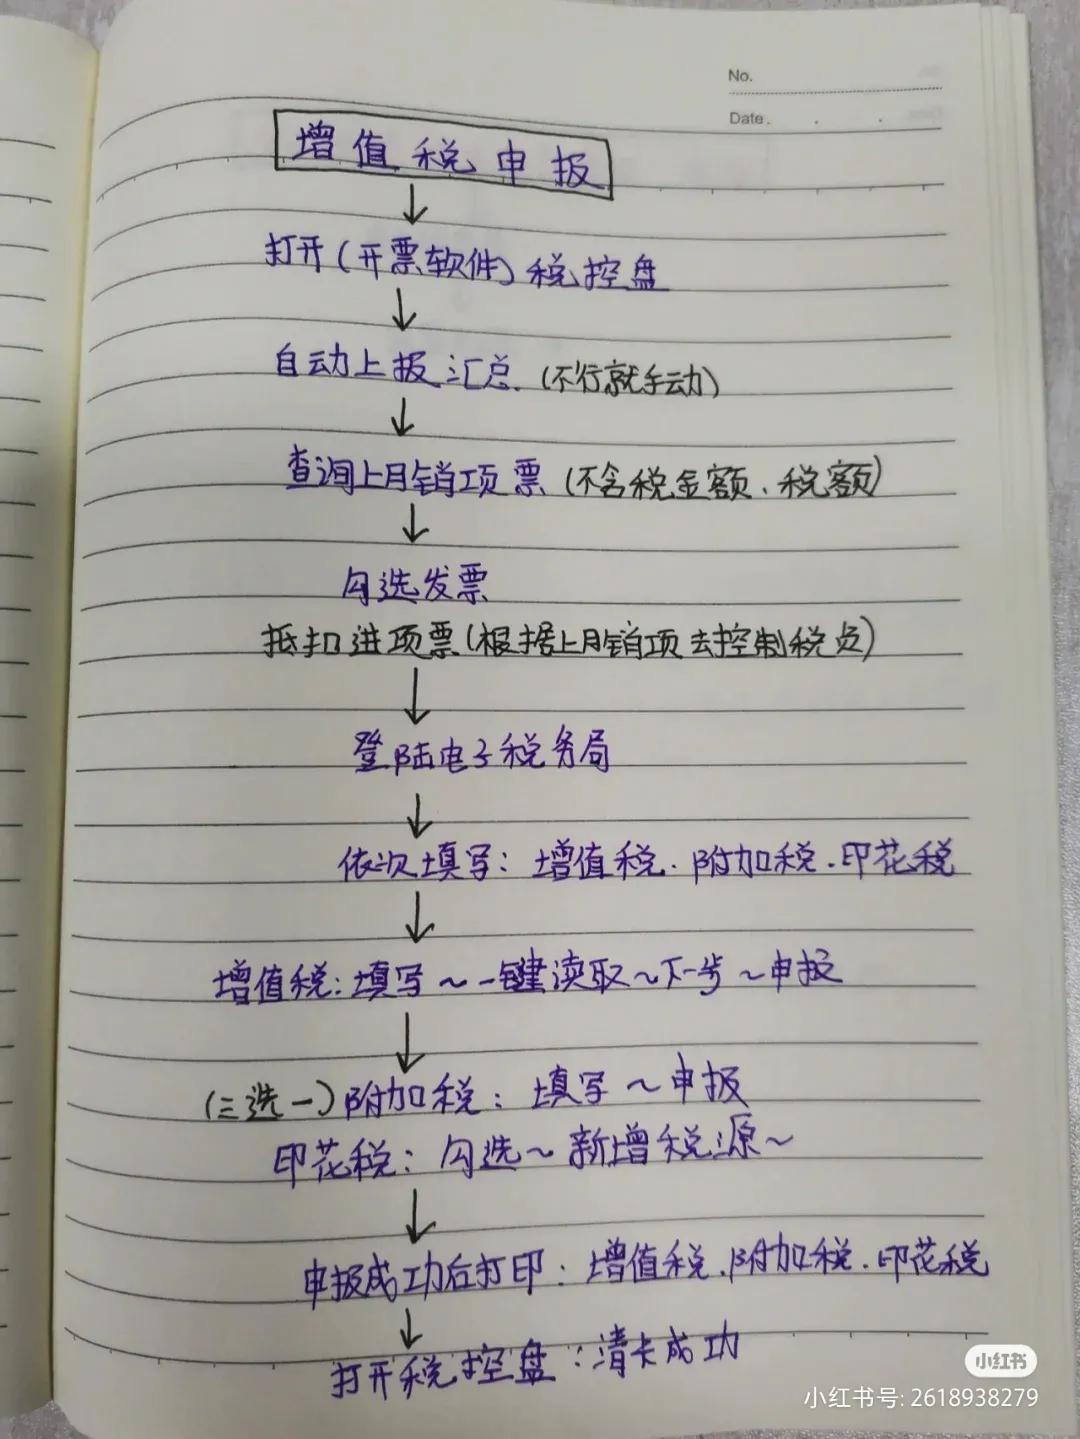 No.
Date. . .
增值税申报
打开(开票软件)税控盘
自动上报汇总.(不行就手动)
查询上月销项票(不含税金额、税额)
勾选发票
抵扣进项票(根据上月销项去控制税负)
登陆电子税务局
依次填写:增值税.附加税.印花税
增值税:填写~一键读取~下一步~申报
(三选一)附加税:填写~申报
印花税:勾选~新增税源~
申报成功后打印:增值税.附加税.印花税
打开税控盘:清卡成功
小红书
小红书号: 2618938279